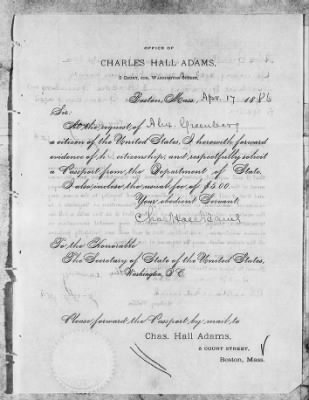 OFFICE OF
CHARLES HALL ADAMS,
5 COURT, COR. WASHINGTON STREET,
Boston, Mass. Apr. 17 1886
Sir:
At the request of Alex. Greenberg
a citizen of the United States, I herewith forward
evidence of h citizenship, and respectfully solicit
a Passport from the Department of State.
I also enclose the usual fee of $5.00.
Your obedient Servant,
Chas Hall Adams
To the Honorable
The Secretary of State of the United States,
Washington, D. C.
Please forward the Passport by mail to
Chas. Hall Adams,
5 COURT STREET,
Boston, Mass.